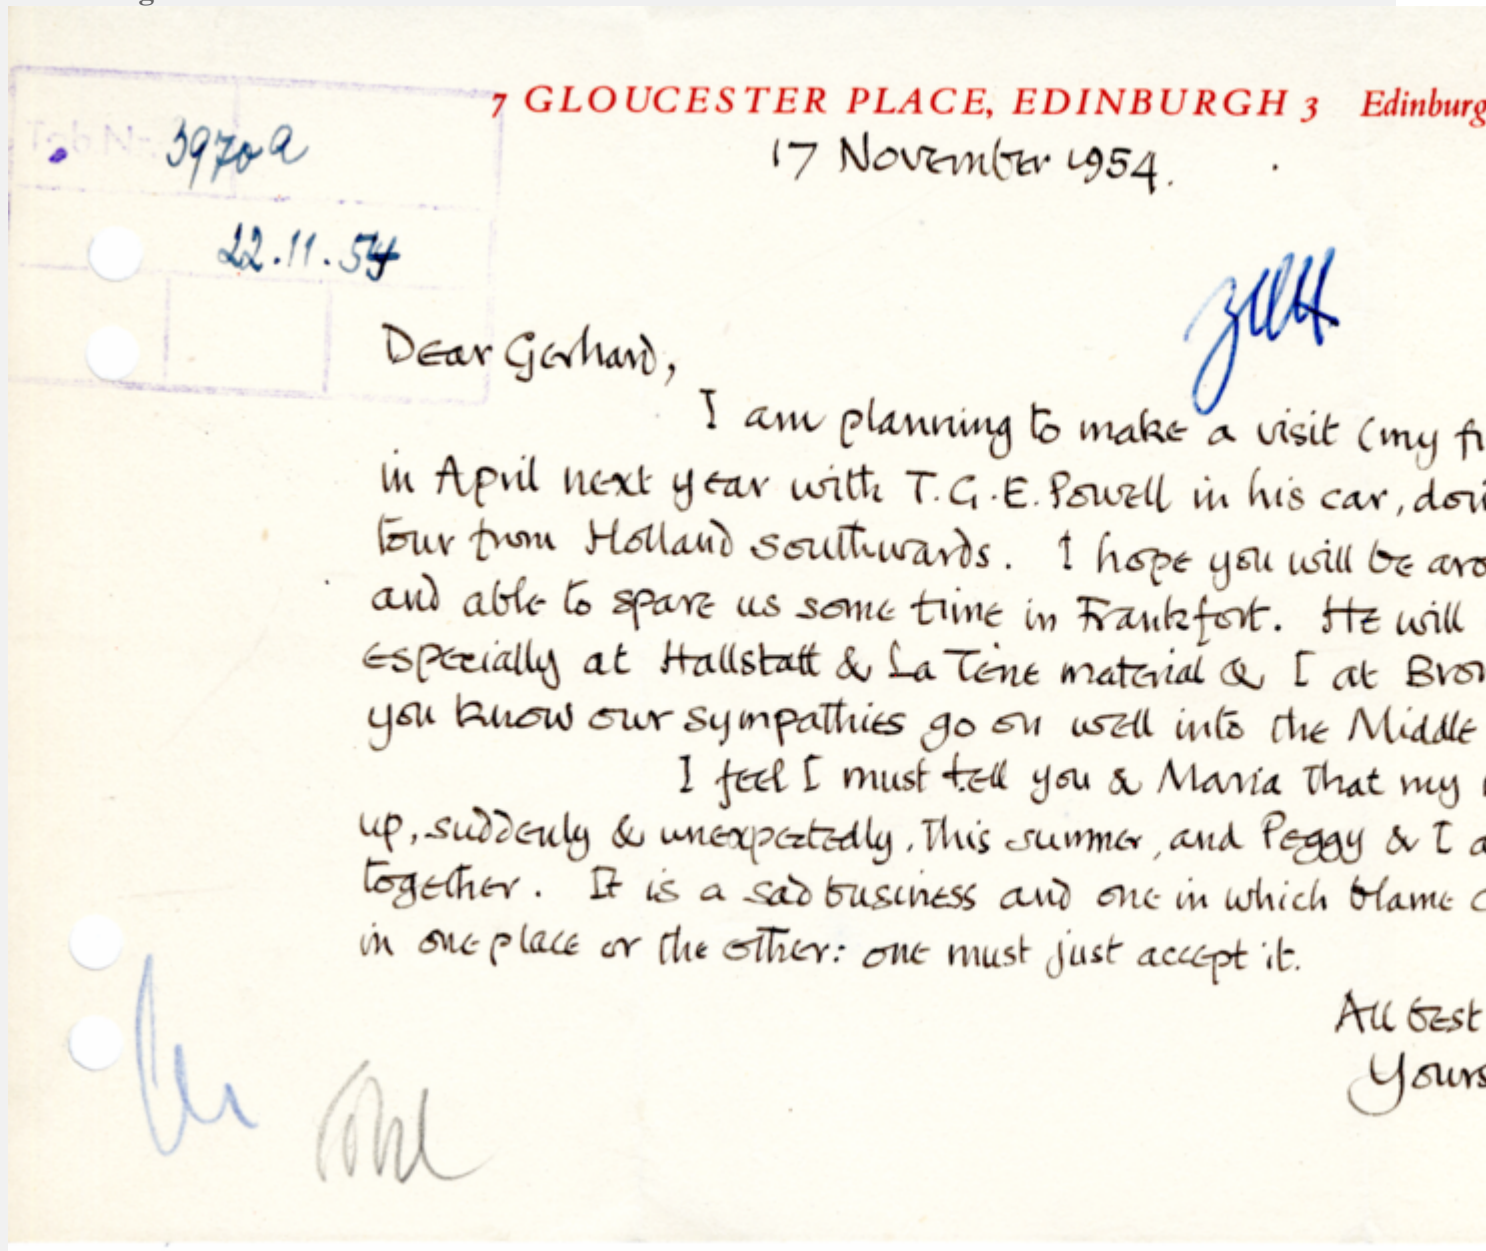 7 GLOUCESTER PLACE, EDINBURGH 3 Edinburg
Tgb.Nr. 3970a
17 November 1954.
22.11.54
Dear Gerhard,
I am planning to make a visit (my fi
in April next year with T.G.E. Powell in his car, doi
tour from Holland southwards. I hope you will be aro
and able to spare us some time in Frankfort. He will
especially at Hallstatt & La Tène material & I at Bron
you know our sympathies go on well into the Middle
I feel I must tell you & Maria that my
up, suddenly & unexpectedly, this summer, and Peggy & I a
together. It is a sad business and one in which blame c
in one place or the other: one must just accept it.
All best
Yours